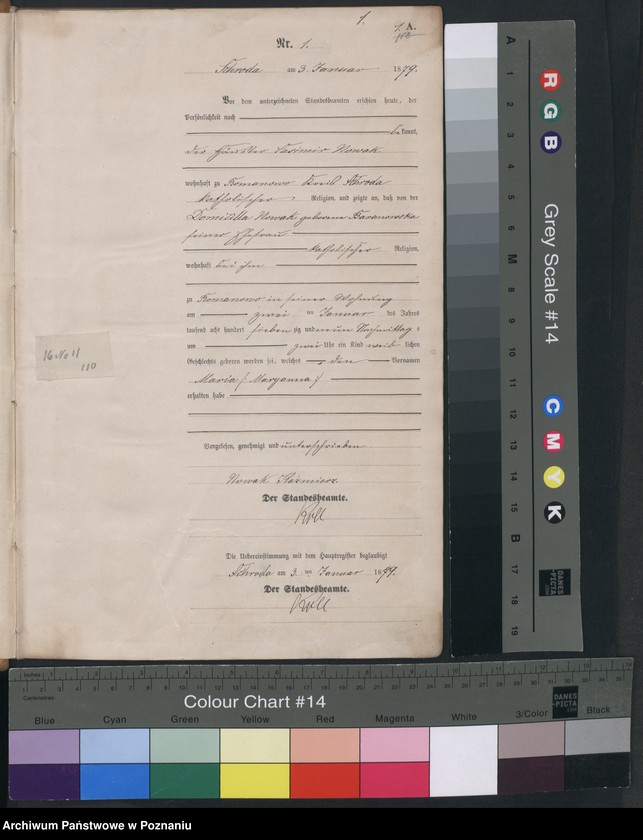 1.
1. A.
Nr. 1.
Schroda am 3 Januar 1879.
Vor dem unterzeichneten Standesbeamten erschien heute, der
Persönlichkeit nach
bekannt,
der Häusler Casimir Nowak
wohnhaft zu Romanowo Kreis Schroda
katholischer Religion, und zeigte an, daß von der
Domicilla Nowak geborene Baranowska
seiner Ehefrau
katholischer Religion,
wohnhaft bei ihm
zu Romanowo in seiner Wohnung
am zwei ten Januar des Jahres
tausend acht hundert sieben zig und neun Nachmittag s
um zwei Uhr ein Kind weib lichen
Geschlechts geboren worden sei, welches den Vornamen
Maria / Maryanna /
erhalten habe
Vorgelesen, genehmigt und unterschrieben
Nowak Kazmierz
Der Standesbeamte.
Roll
Die Uebereinstimmung mit dem Hauptregister beglaubigt
Schroda am 3. ten Januar 1879.
Der Standesbeamte.
Roll
16 No 11
110
A 1 2 3 4 5 6 M 8 9 10 11 12 13 14 15 B 17 18 19
R G B
Grey Scale #14
C M Y K
DANES
-PICTA
.COM
Inches 1 2 3 4 5 6 7 8 9 10 11 12
Centimetres
Colour Chart #14
DANES
-PICTA
.COM
Blue Cyan Green Yellow Red Magenta White 3/Color Black
Archiwum Państwowe w Poznaniu